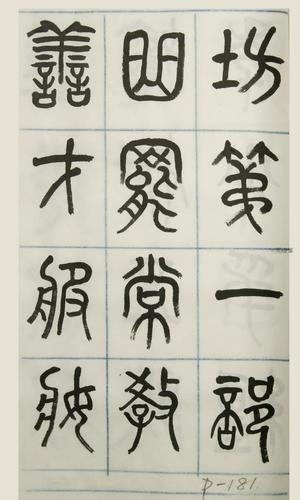 坊第一部
曲罷常教
善才服妝
D-181